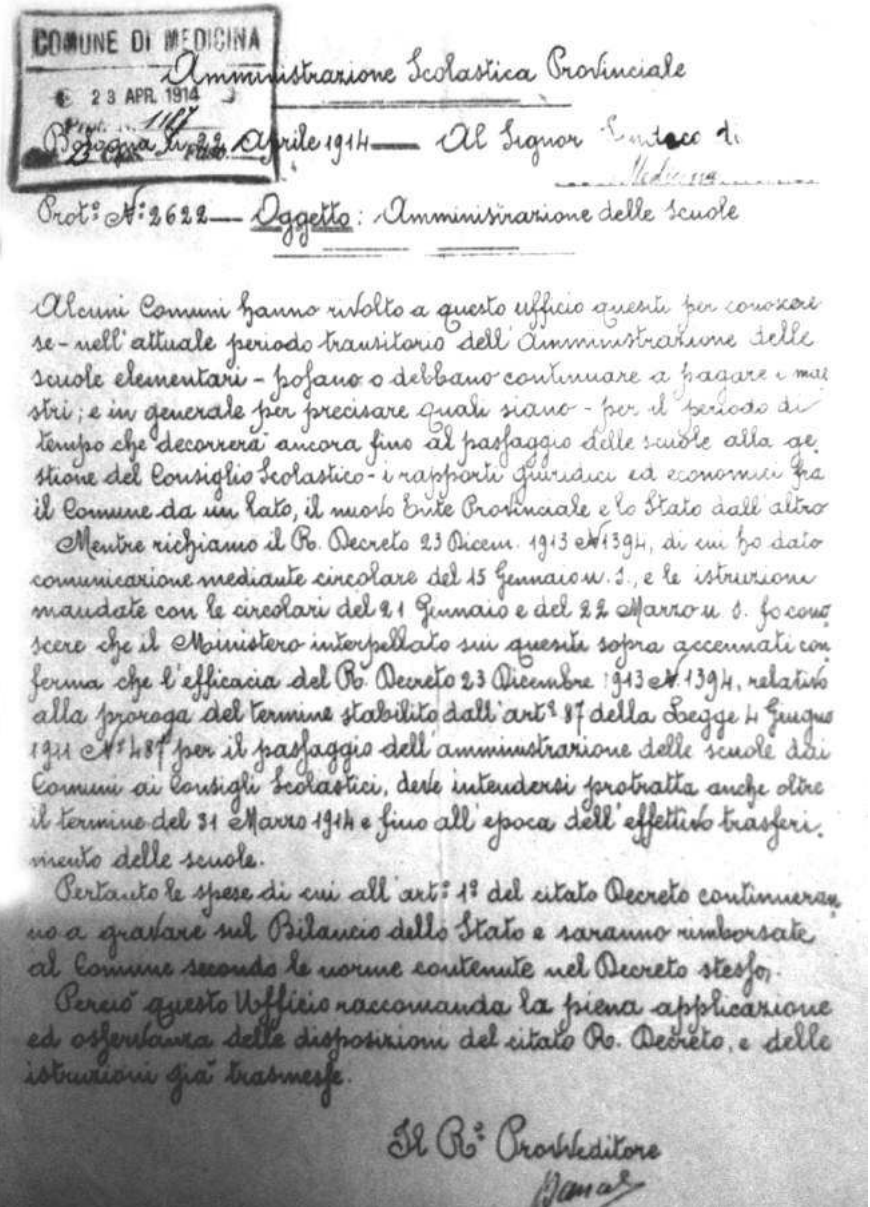 COMUNE DI MEDICINA
23 APR. 1914
Prot. N. 1187
Amministrazione Scolastica Provinciale
Bologna li 22 Aprile 1914 — Al Signor Sindaco di
Medicina
Prot.º Nº: 2622 — Oggetto: Amministrazione delle Scuole
Alcuni Comuni hanno rivolto a questo ufficio quesiti per conoscere
se - nell'attuale periodo transitorio dell'Amministrazione delle
scuole elementari - possano o debbano continuare a pagare i mae
stri; e in generale per precisare quali siano - per il periodo di
tempo che decorrerà ancora fino al passaggio delle scuole alla ge,
stione del Consiglio Scolastico - i rapporti giuridici ed economici fra
il Comune da un lato, il nuovo Ente Provinciale e lo Stato dall'altro
Mentre richiamo il R. Decreto 23 Dicem. 1913 N 1394, di cui ho dato
comunicazione mediante circolare del 15 Gennaio u. s., e le istruzioni
mandate con le circolari del 21 Gennaio e del 22 Marzo u. s. fo cono
scere che il Ministero interpellato sui quesiti sopra accennati con
ferma che l'efficacia del R. Decreto 23 Dicembre 1913 N. 1394, relativo
alla proroga del termine stabilito dall'artº 87 della Legge 4 Giugno
1911 Nº 487 per il passaggio dell'amministrazione delle scuole dai
Comuni ai Consigli Scolastici, deve intendersi protratta anche oltre
il termine del 31 Marzo 1914 e fino all'epoca dell'effettivo trasferi,
mento delle scuole.
Pertanto le spese di cui all'artº 1º del citato Decreto continueran
no a gravare sul Bilancio dello Stato e saranno rimborsate
al Comune secondo le norme contenute nel Decreto stesso.
Perciò questo Ufficio raccomanda la piena applicazione
ed osservanza delle disposizioni del citato R. Decreto, e delle
istruzioni già trasmesse.
Il Rº Provveditore